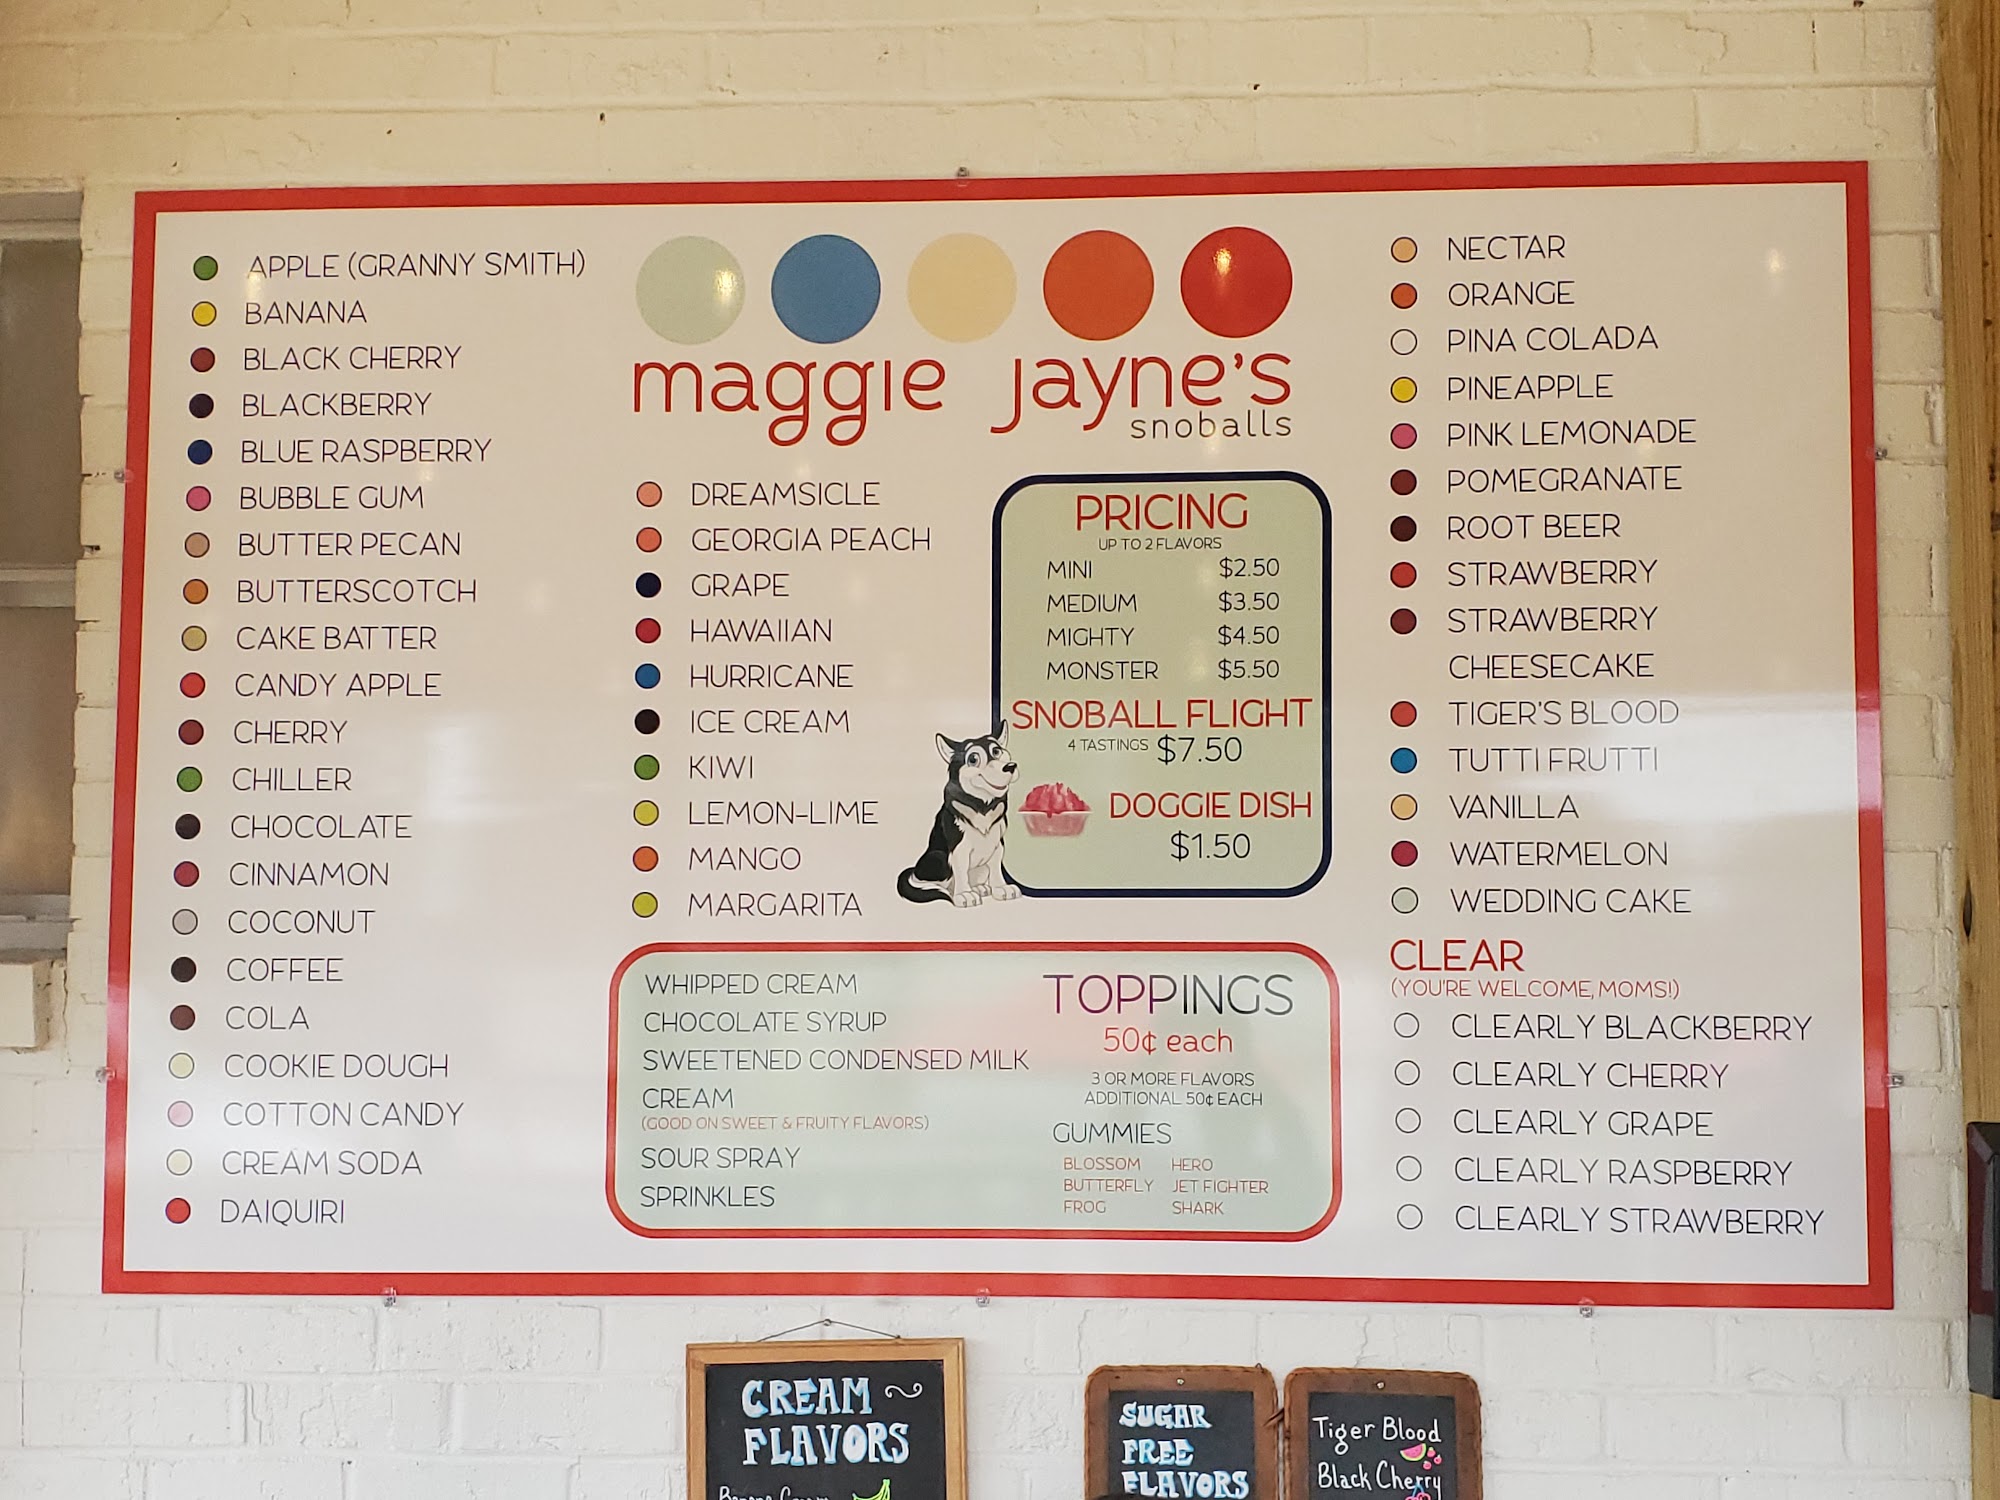 APPLE (GRANNY SMITH)
BANANA
BLACK CHERRY
BLACKBERRY
BLUE RASPBERRY
BUBBLE GUM
BUTTER PECAN
BUTTERSCOTCH
CAKE BATTER
CANDY APPLE
CHERRY
CHILLER
CHOCOLATE
CINNAMON
COCONUT
COFFEE
COLA
COOKIE DOUGH
COTTON CANDY
CREAM SODA
DAIQUIRI
maggie jayne's
snoballs
DREAMSICLE
GEORGIA PEACH
GRAPE
HAWAIIAN
HURRICANE
ICE CREAM
KIWI
LEMON-LIME
MANGO
MARGARITA
PRICING
UP TO 2 FLAVORS
MINI $2.50
MEDIUM $3.50
MIGHTY $4.50
MONSTER $5.50
SNOBALL FLIGHT
4 TASTINGS $7.50
DOGGIE DISH
$1.50
WHIPPED CREAM
CHOCOLATE SYRUP
SWEETENED CONDENSED MILK
CREAM
(GOOD ON SWEET & FRUITY FLAVORS)
SOUR SPRAY
SPRINKLES
TOPPINGS
50¢ each
3 OR MORE FLAVORS
ADDITIONAL 50¢ EACH
GUMMIES
BLOSSOM HERO
BUTTERFLY JET FIGHTER
FROG SHARK
NECTAR
ORANGE
PINA COLADA
PINEAPPLE
PINK LEMONADE
POMEGRANATE
ROOT BEER
STRAWBERRY
STRAWBERRY
CHEESECAKE
TIGER'S BLOOD
TUTTI FRUTTI
VANILLA
WATERMELON
WEDDING CAKE
CLEAR
(YOU'RE WELCOME, MOMS!)
CLEARLY BLACKBERRY
CLEARLY CHERRY
CLEARLY GRAPE
CLEARLY RASPBERRY
CLEARLY STRAWBERRY
CREAM
FLAVORS
SUGAR
FREE
FLAVORS
Tiger Blood
Black Cherry